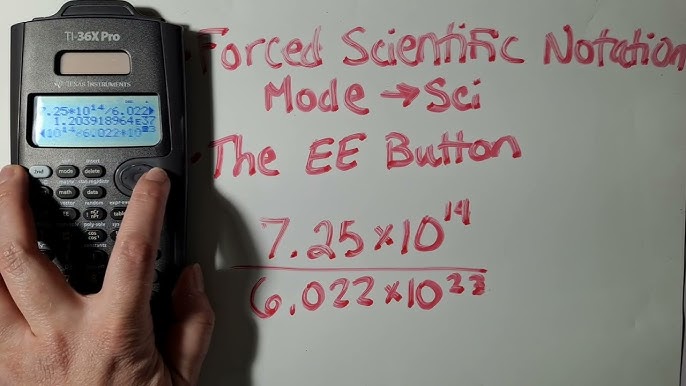 TI-36X Pro
TEXAS INSTRUMENTS
.25*10^14/6.022
1.203918964E37
10^14÷6.022*10^
2nd mode delete
math data
EE table
Forced Scientific Notation
Mode → Sci
The EE Button
7.25 × 10^14
6.022 × 10^23